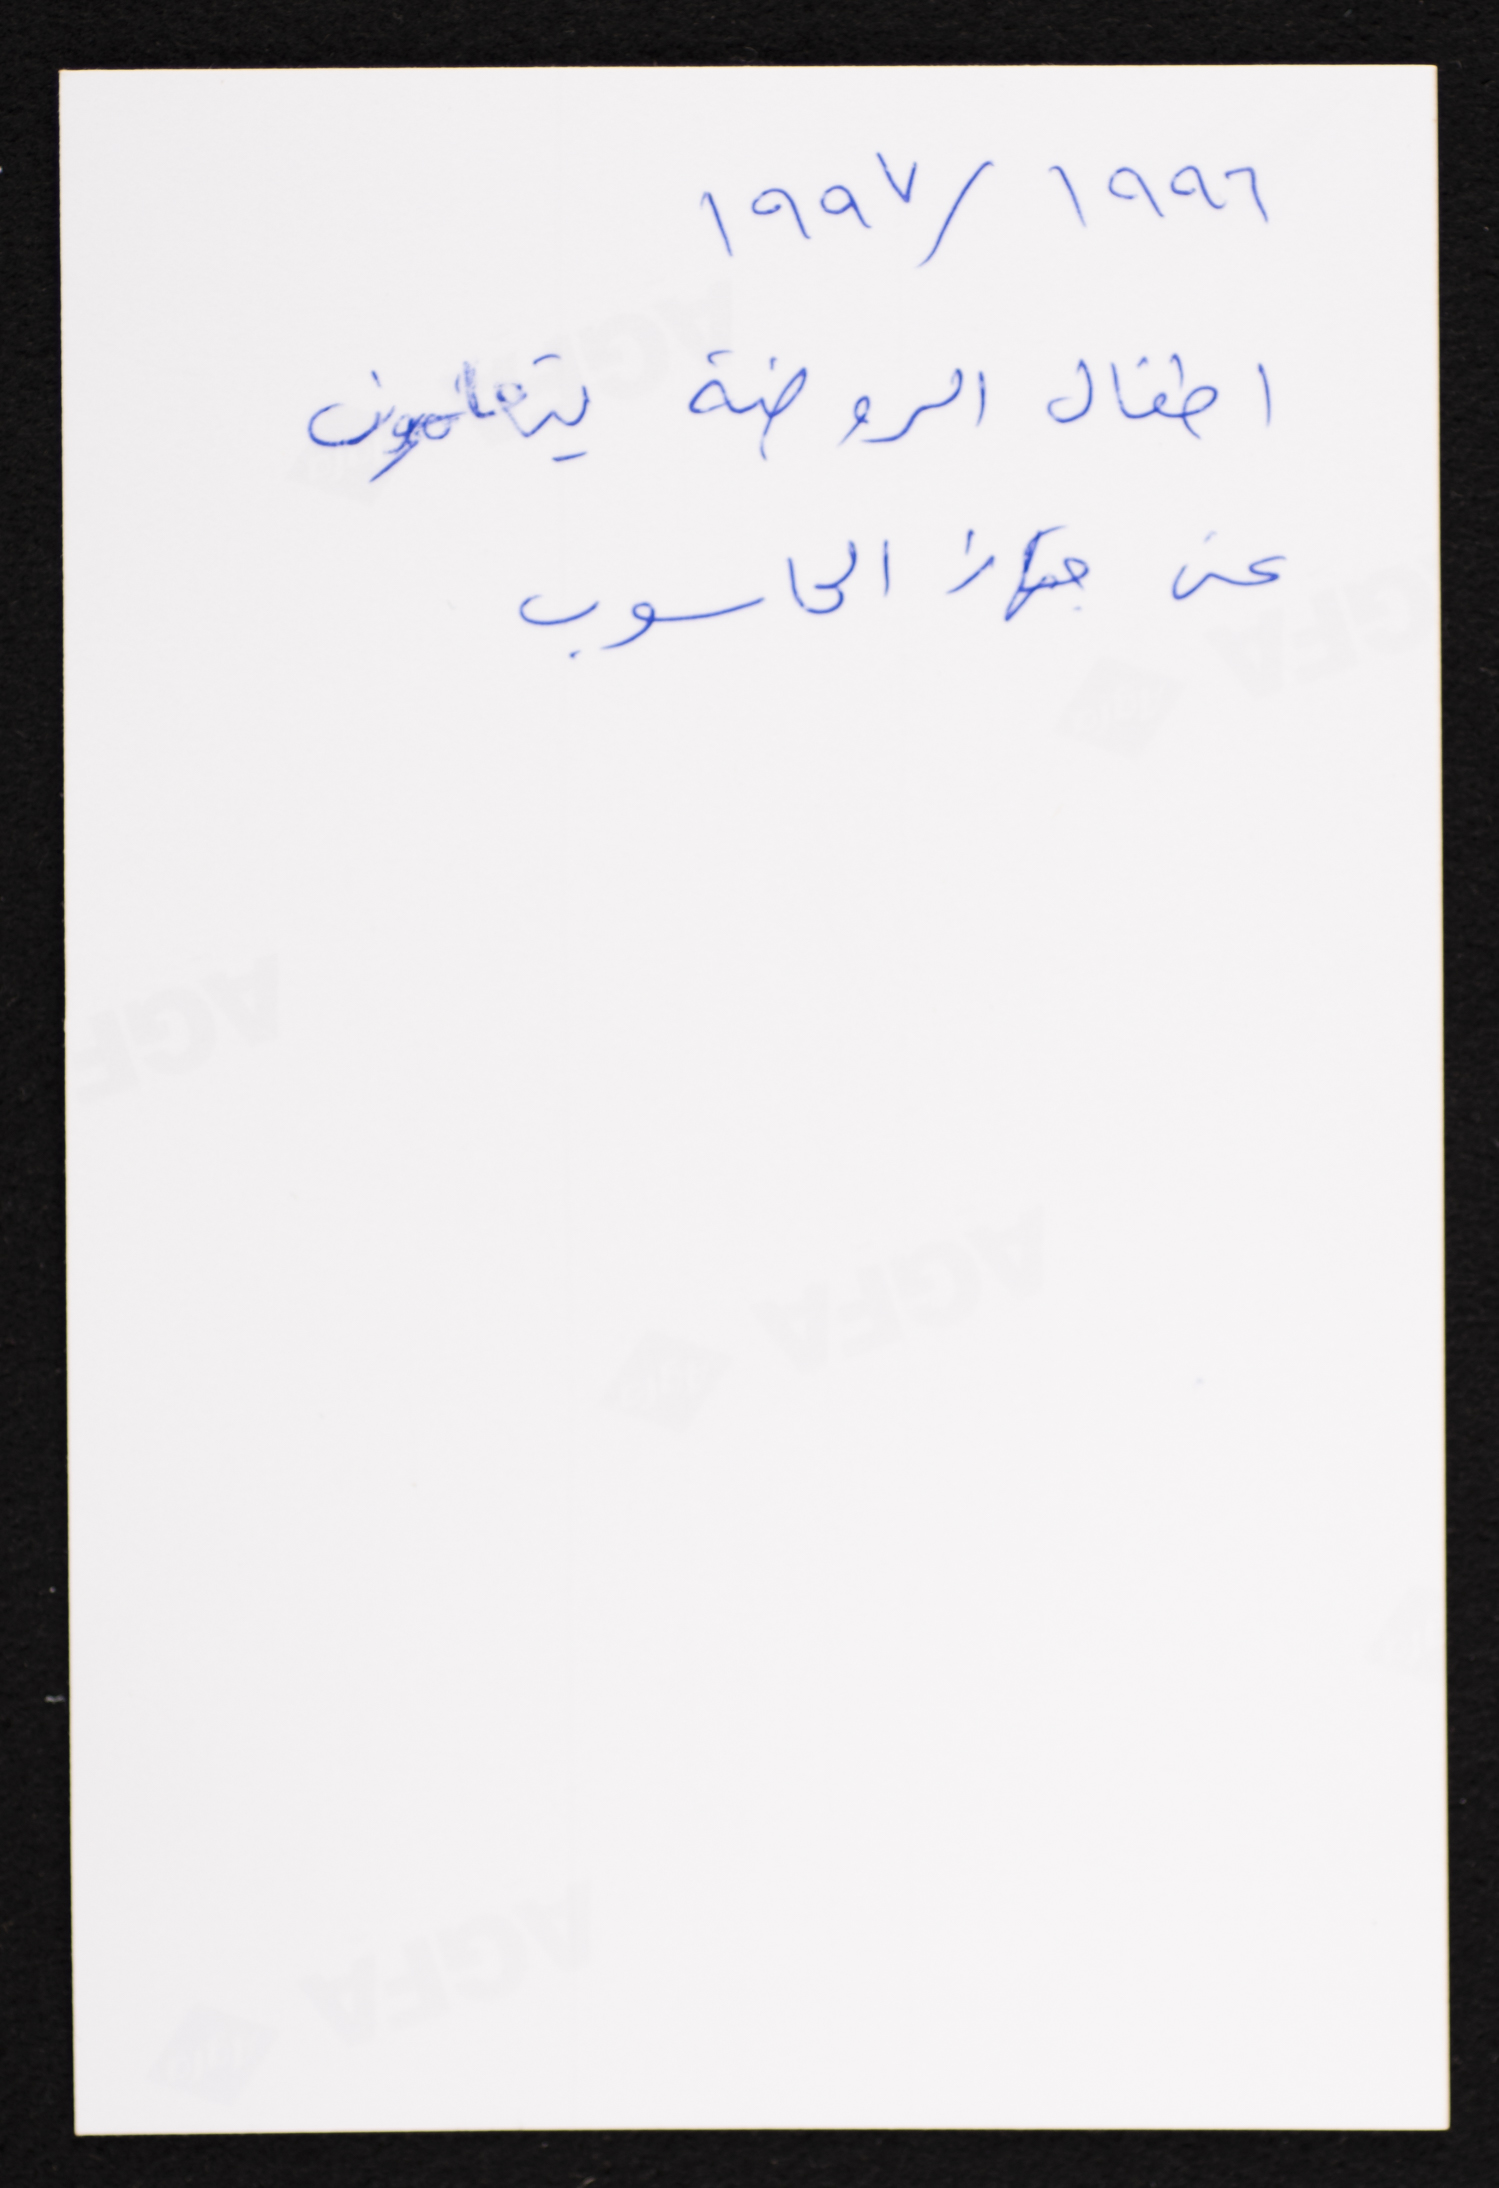 ١٩٩٦ /١٩٩٧
اطفال الروضة يتعلمون
عن جهاز الحاسوب
AGFA
AGFA
AGFA
AGFA
AGFA